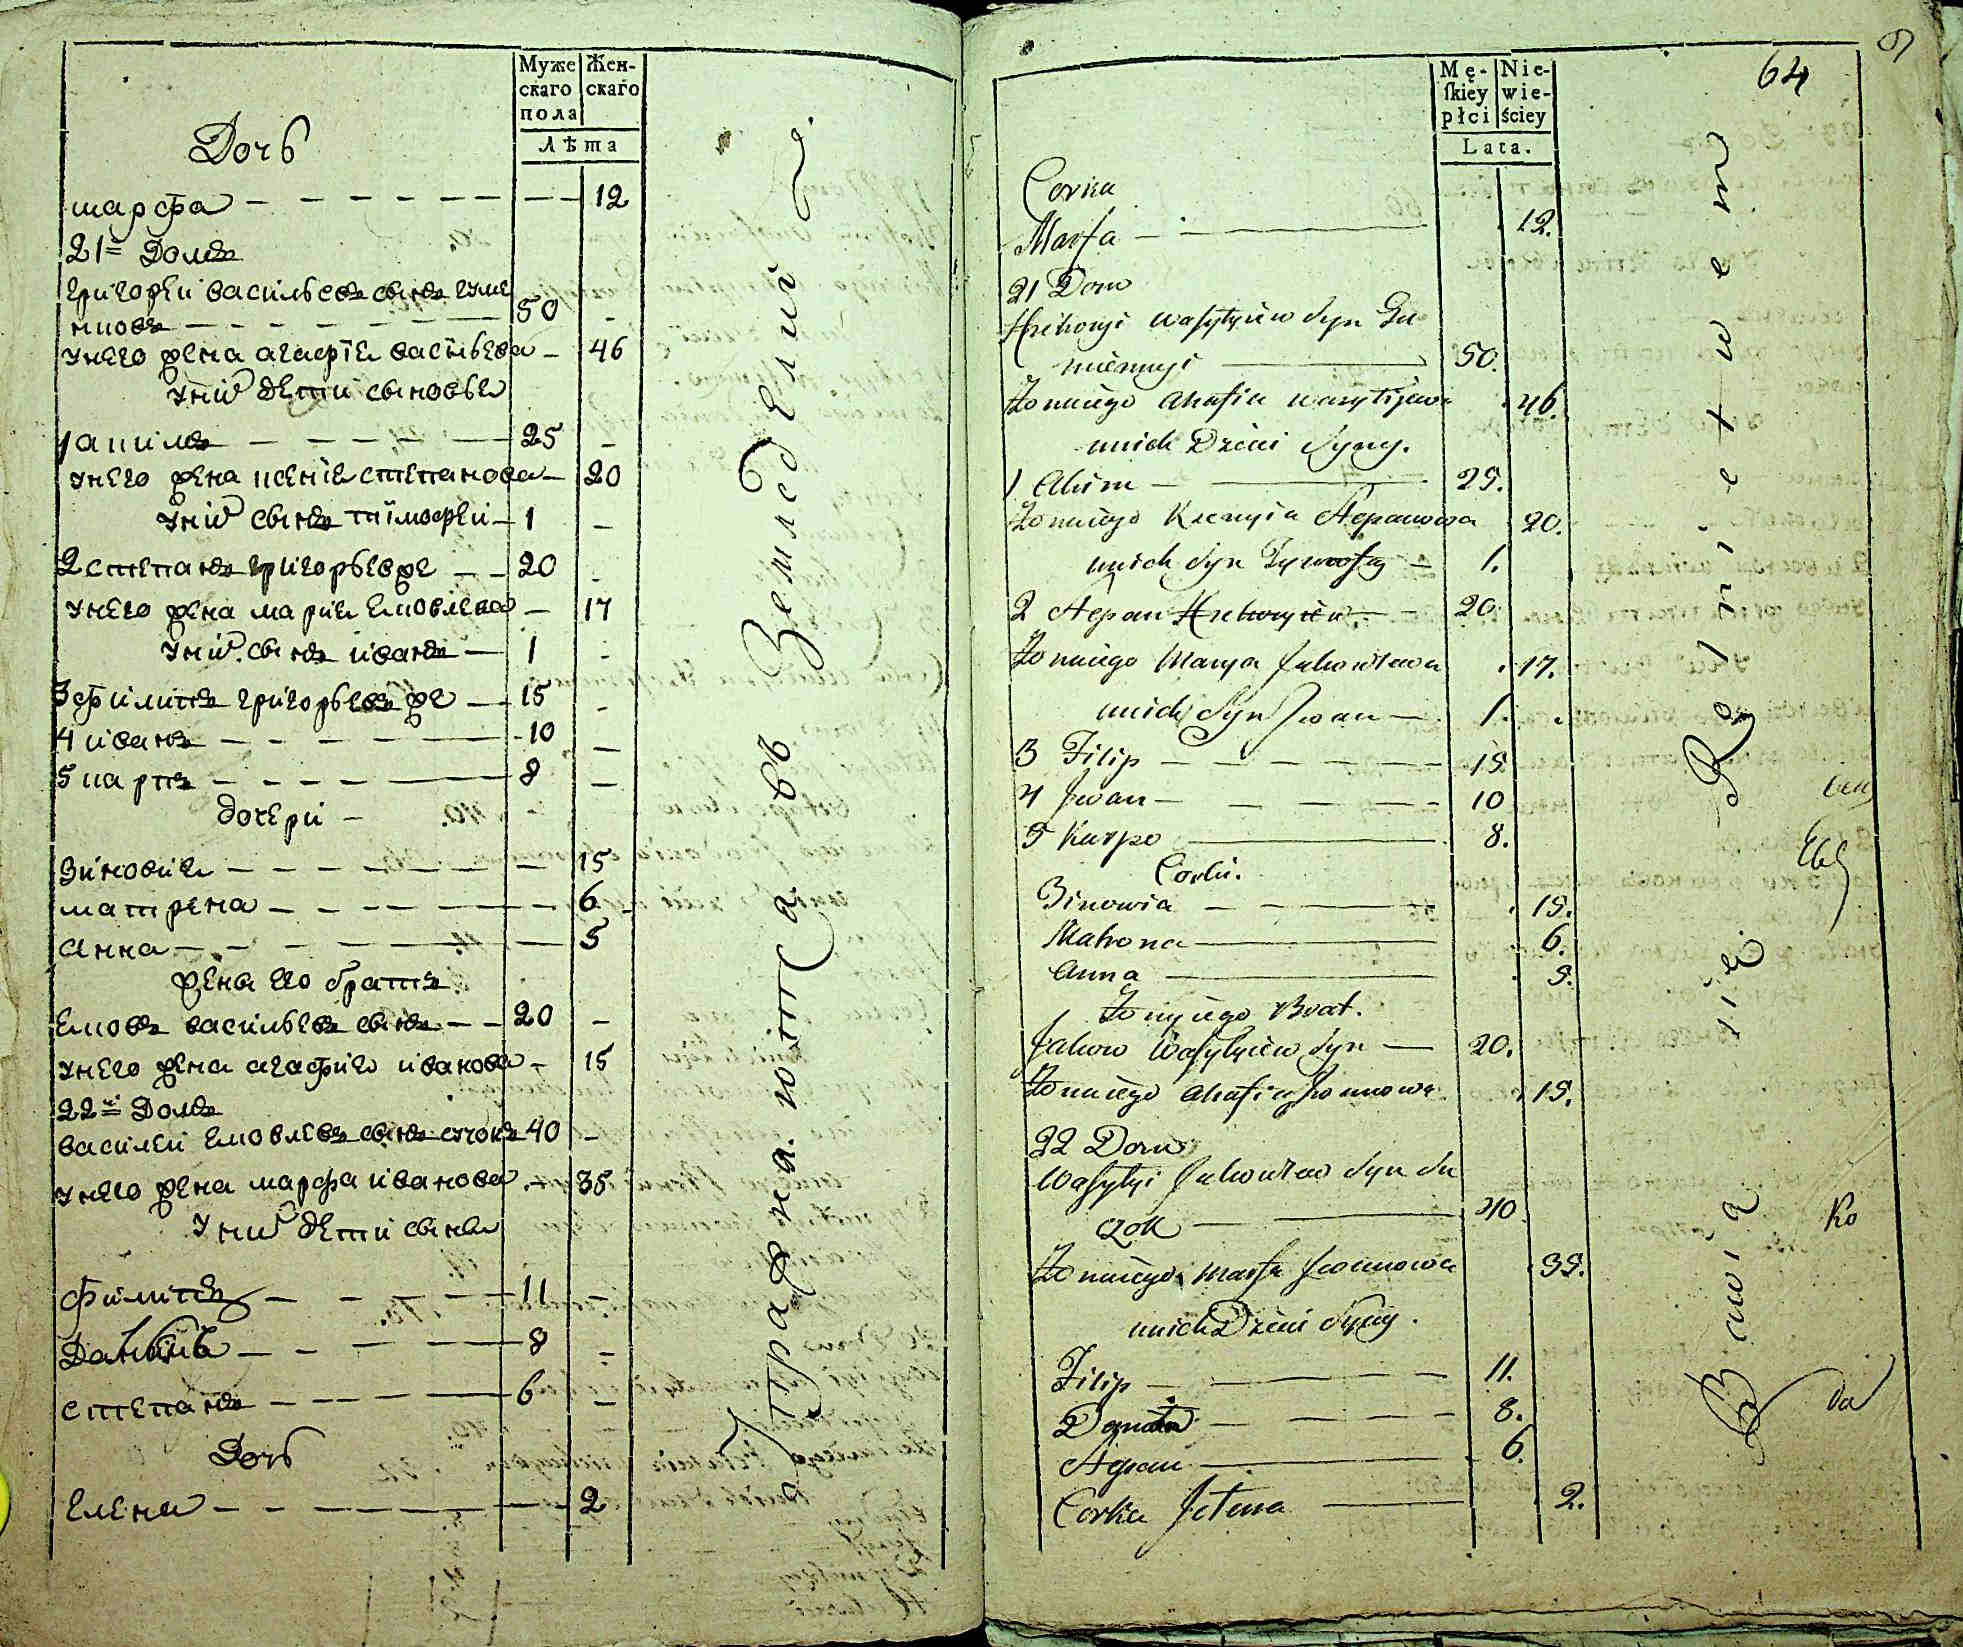 Муже Жен-
скаго скаго
пола
Лѣта
Дочь
марфа 12
21 Домъ
григореи васильевъ сынъ гуме
нновъ 50
унего жена агафия васильева 46
уних дети сыновье
1 акимъ 25
унего жена ксения степанова 20
уних сынъ тимофеи 1
2 степанъ григорьевже 20
унего жена мария ековлева 17
уних сынъ иванъ 1
3 филипъ григорьевъ же 15
4 иванъ 10
5 карпъ 8
дочери
зиновия 15
матрена 6
анна 5
жены его братъ
ековъ васильевъ сынъ 20
унего жена агафия иванова 15
22 Домъ
василеи ековлевъ сынъ 40
унего жена марфа иванова 35
уних дети сыны
филипъ 11
8
степанъ 6
Дочь
елена 2
Упражнаются въ Земледелии
64
Mę- Nie-
skiey wie-
płci ściey
Lata.
Corka
Marfa 12.
21 Dom
Hrehoryi Wasylyiew Syn Gu
miennyi 50.
Żona iego Ahafia Wasylijewa 46.
u nich Dzieci Syny.
1 Akim 25.
Żona iego Ksenyia Stepanowa 20.
u nich Syn Tymofey 1.
2 Stepan Hrehoryiew 20
Żona iego Marya Jakowlewa 17.
u nich Syn Jwan 1.
3 Filip 15
4 Jwan 10
5 Karpo 8.
Corki.
Zinowia 15.
Matrona 6.
Anna 5.
Żony iego Brat.
Jakow Wasylyiew Syn 20.
Żona iego Ahafia Jwanowa 15.
22 Dom
Wasylyi Jakowlew Syn Su
czok 40
Żona iego Marfa Jwanowa 35.
u nich Dzieci Syny.
Filip 11.
8.
Stepan 6.
Corka Jelena 2.
Bawią się Rolnictwem